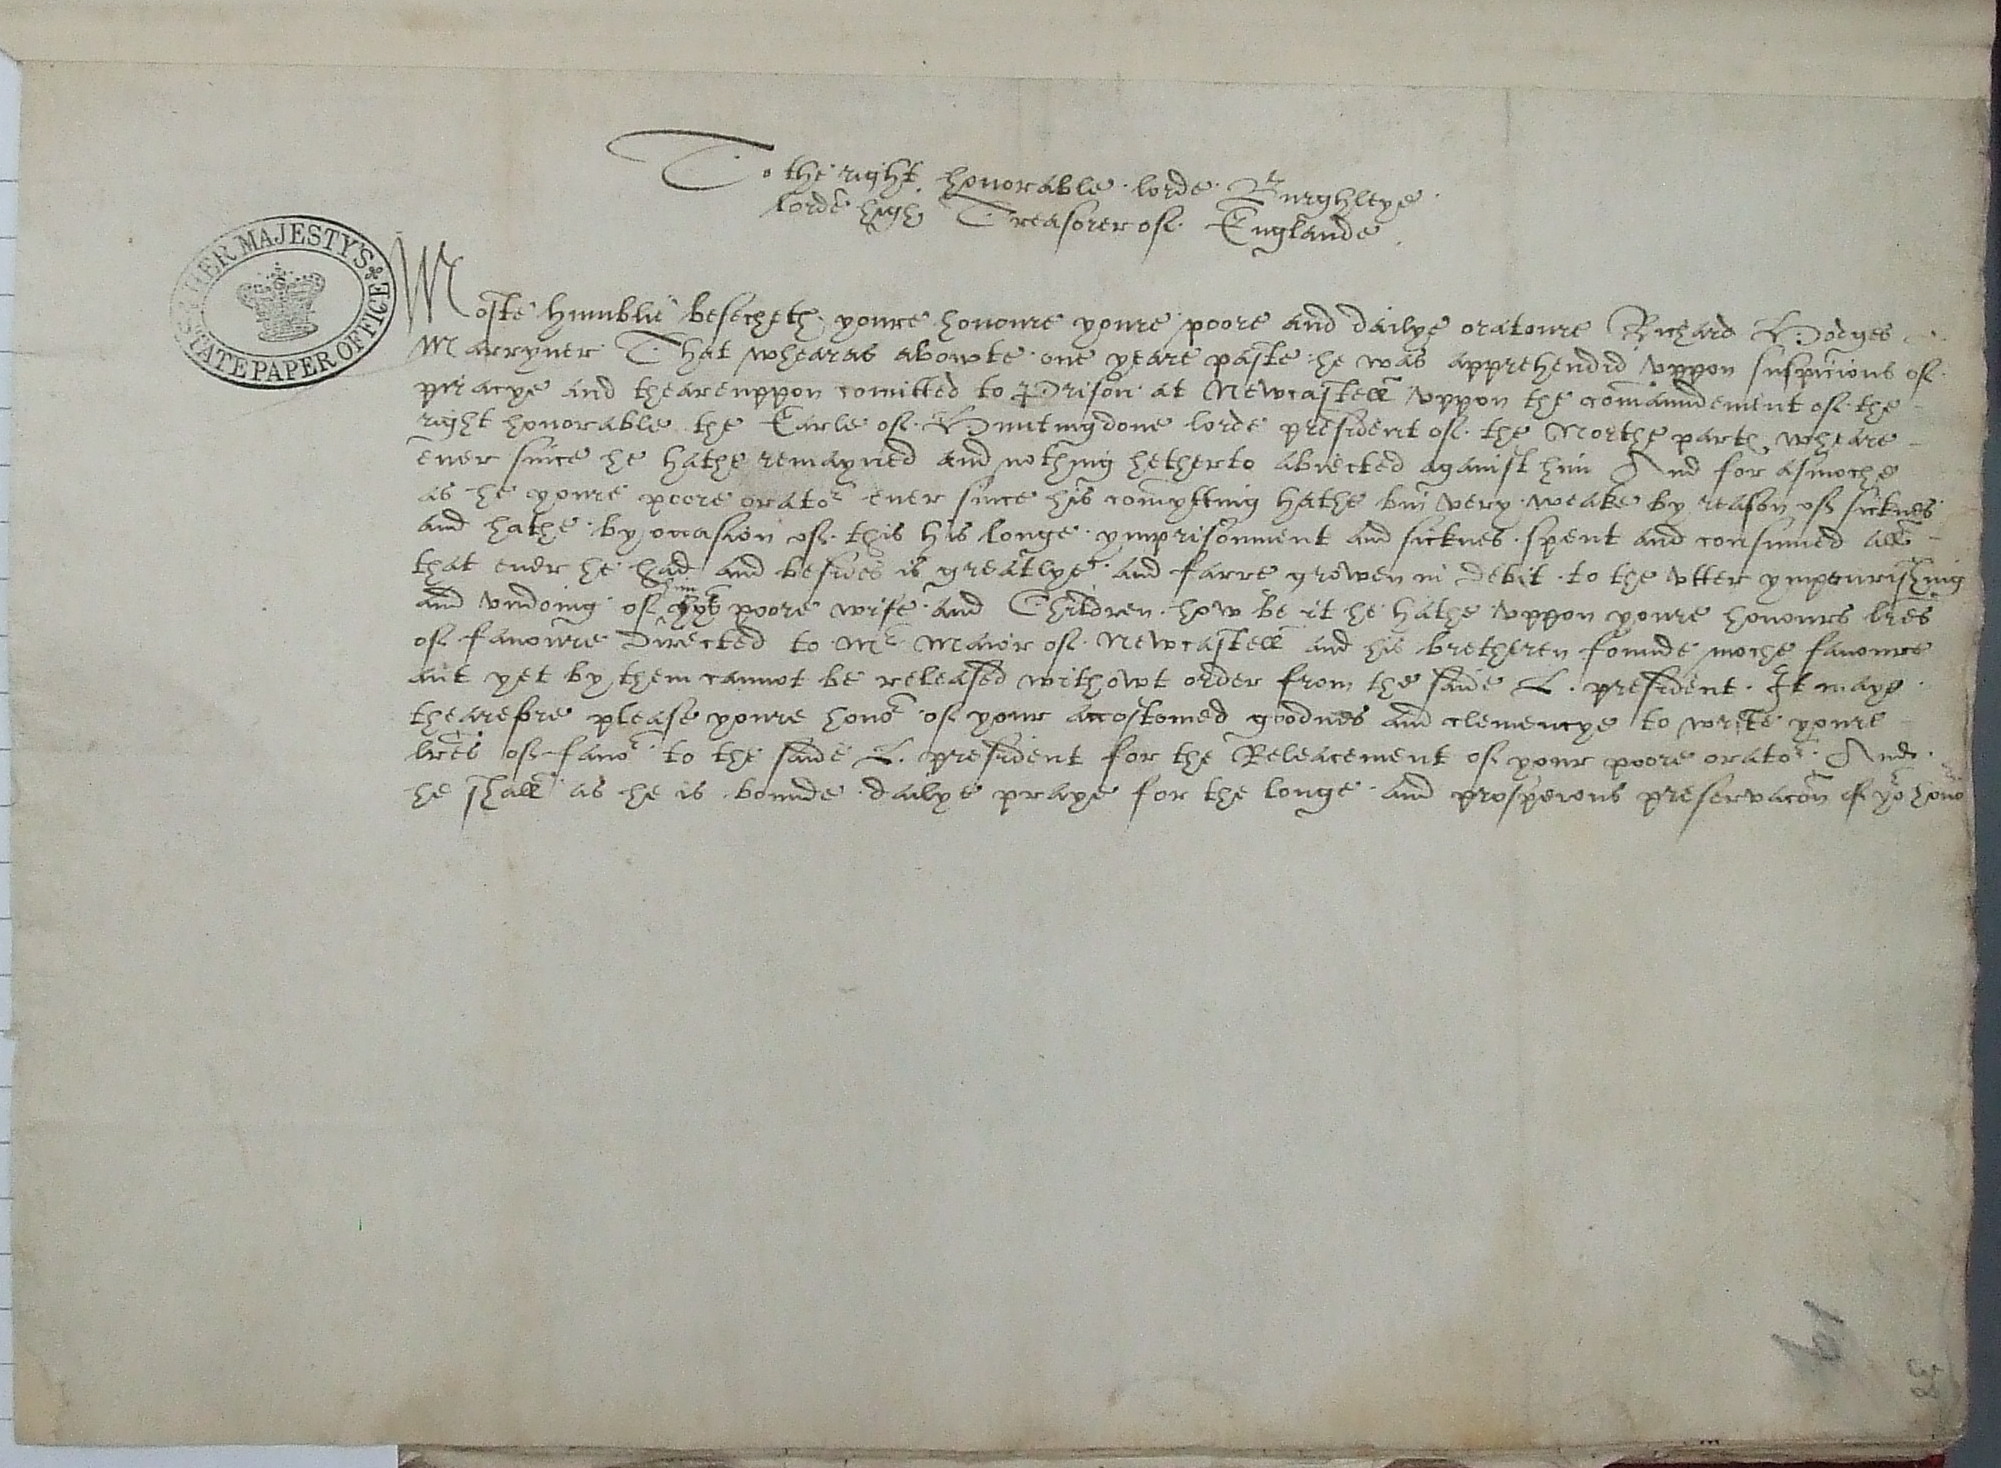 To the right honorable lorde Burghleye
lorde high Treasorer of Englande
HER MAJESTY'S
STATE PAPER OFFICE
Moste humblie besecheth youre honoure youre poore and dailye oratoure Richard Hodges
Marryner That whearas abowte one yeare paste he was apprehendid uppon suspicions of
piracye and theareuppon comitted to Prison at Newcastell uppon the comaundement of the
right honorable the Earle of Huntingdone lorde president of the Northe parts wheare
ever since he hathe remayned and nothing hetherto abiected against him And for asmoche
as he youre poore orator ever since his comytting hathe bin very weake by reason of sicknes
and hathe by occasion of this his longe ymprisonment and sicknes spent and consumed all
that ever he had and besides is greatlye and farre growen in debit to the utter ympourishing
and undoing of him poore wife and Children how be it he hathe uppon youre honours lres
of favoure Directed to Mr Maior of Newcastell and his bretheren founde moche favoure
but yet by them cannot be released withowt order from the saide L. president. It maye
thearefore please youre honor of your accostomed goodnes and clemencye to write youre
lres of favor to the saide L. president for the Releacement of your poore orator. And
he shall as he is bounde dailye praye for the longe and prosperous preservacon of yor honor
38